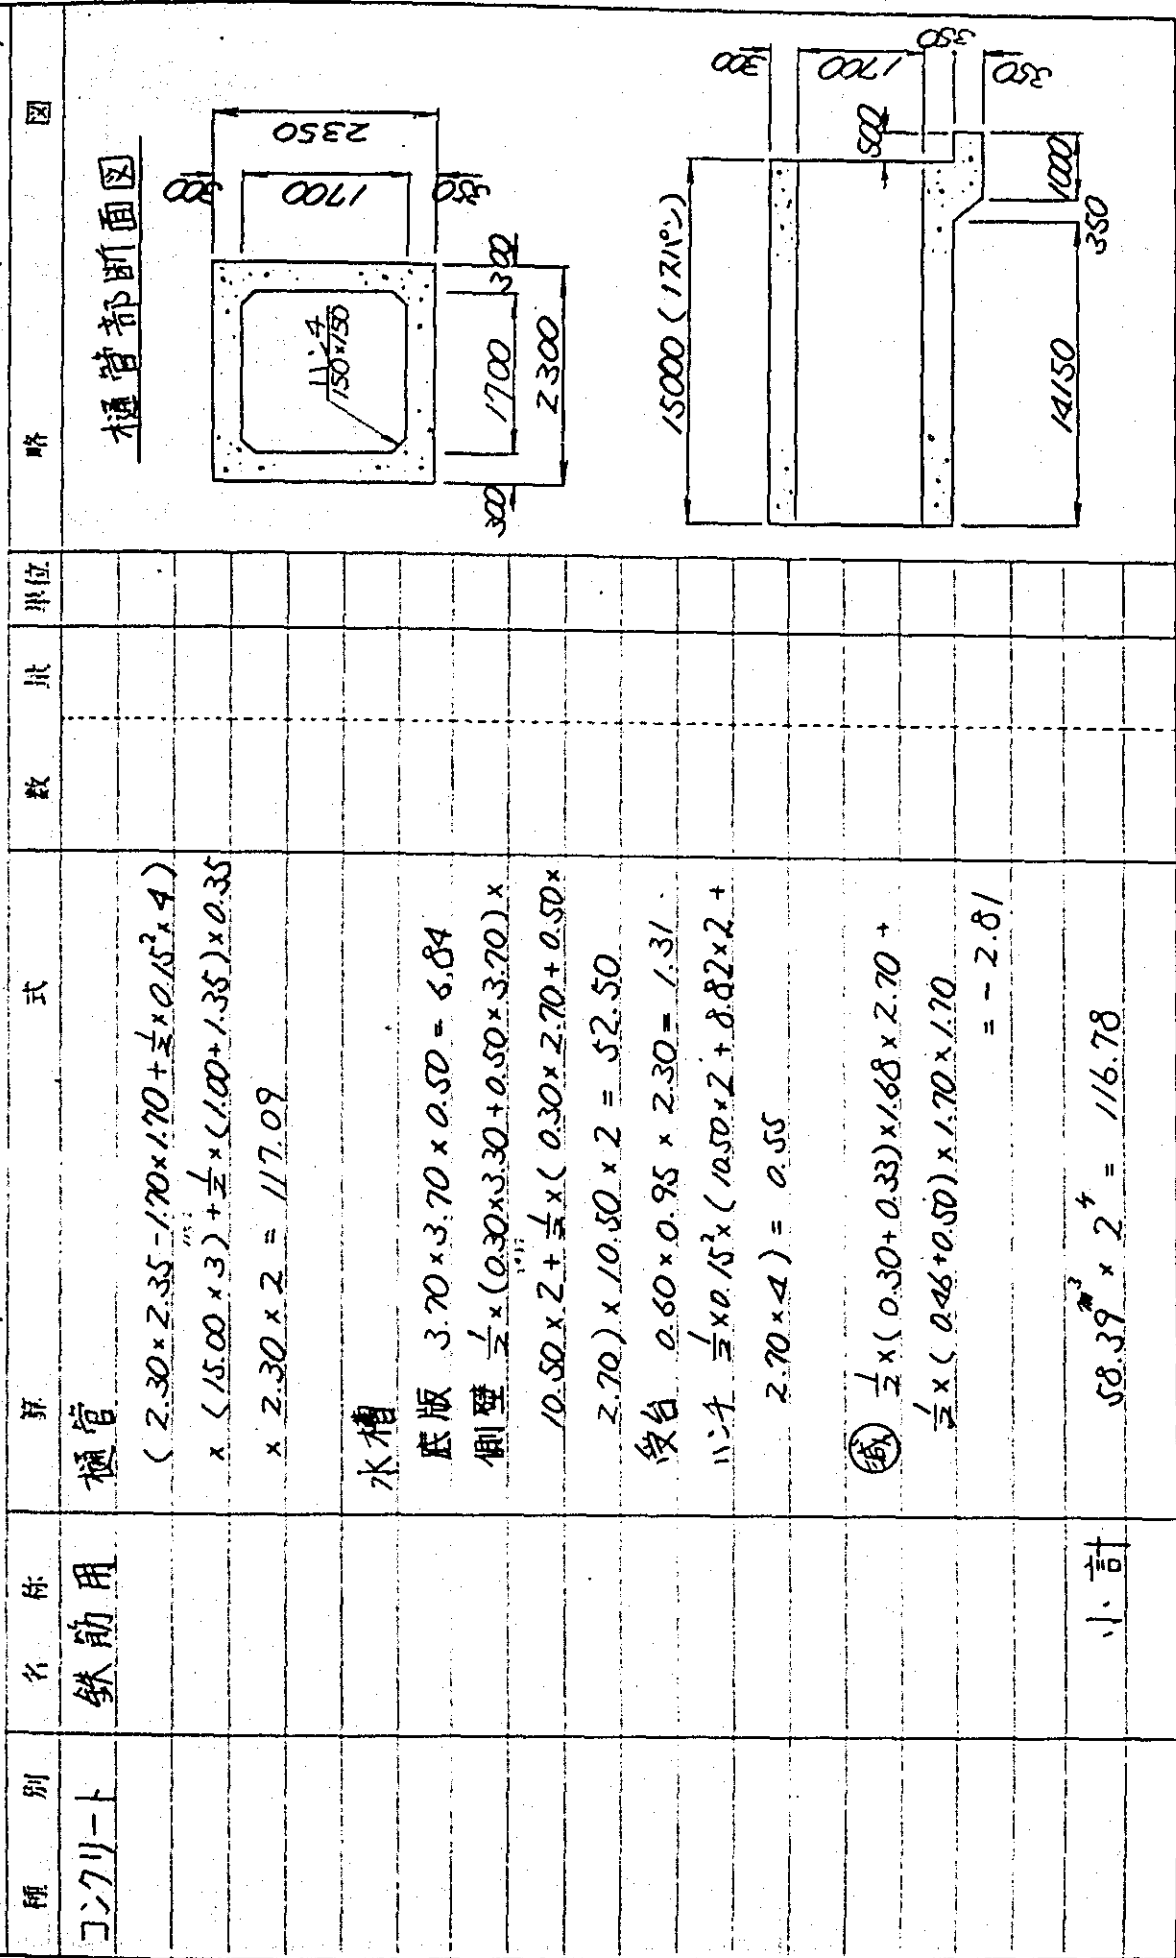 種 別 名 称 算 式 数 量 単位 略 図
コンクリート 鉄筋用 樋管
(2.30×2.35-1.70×1.70+1/2×0.15²×4)
×(15.00×3)+1/2×(1.00+1.35)×0.35
×2.30×2=117.09
水槽
底版 3.70×3.70×0.50=6.84
側壁 1/2×(0.30×3.30+0.50×3.70)×
10.50×2+1/2×(0.30×2.70+0.50×
2.70)×10.50×2=52.50
受台 0.60×0.95×2.30=1.31
ハンチ 1/2×0.15²×(10.50×2+8.82×2+
2.70×4)=0.55
減 1/2×(0.30+0.33)×1.68×2.70+
1/2×(0.46+0.50)×1.70×1.70
=-2.81
小計 58.39m³×2ヶ=116.78
樋管部断面図
300
1700
350
2350
ハンチ
150×150
300
1700
300
2300
15000(1スパン)
300
1700
350
350
500
1000
350
14150